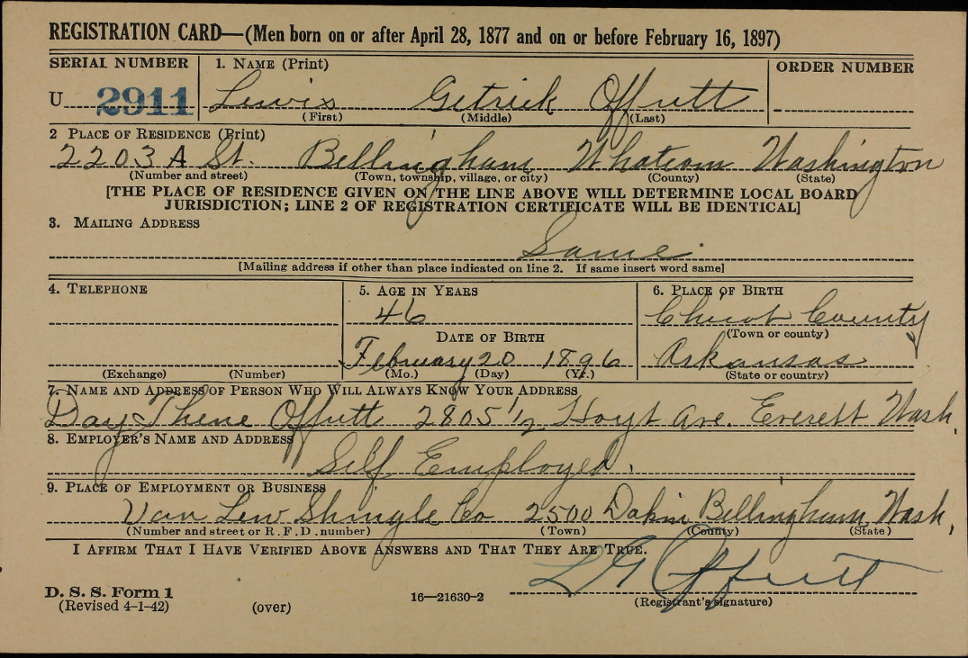 REGISTRATION CARD—(Men born on or after April 28, 1877 and on or before February 16, 1897)
SERIAL NUMBER 1. NAME (Print) ORDER NUMBER
U 2911 Lewis Getrick Offutt
(First) (Middle) (Last)
2 PLACE OF RESIDENCE (Print)
2203 A St. Bellingham Whatcom Washington
(Number and street) (Town, township, village, or city) (County) (State)
[THE PLACE OF RESIDENCE GIVEN ON THE LINE ABOVE WILL DETERMINE LOCAL BOARD
JURISDICTION; LINE 2 OF REGISTRATION CERTIFICATE WILL BE IDENTICAL]
3. MAILING ADDRESS
Same
[Mailing address if other than place indicated on line 2. If same insert word same]
4. TELEPHONE 5. AGE IN YEARS 6. PLACE OF BIRTH
46 Chicot County
DATE OF BIRTH (Town or county)
February 20 1896 Arkansas
(Exchange) (Number) (Mo.) (Day) (Yr.) (State or country)
7. NAME AND ADDRESS OF PERSON WHO WILL ALWAYS KNOW YOUR ADDRESS
Day Thene Offutt 2805 1/2 Hoyt Ave. Everett Wash.
8. EMPLOYER'S NAME AND ADDRESS
Self Employed.
9. PLACE OF EMPLOYMENT OR BUSINESS
Van Lew Shingle Co 2500 Dakin Bellingham, Wash.
(Number and street or R. F. D. number) (Town) (County) (State)
I AFFIRM THAT I HAVE VERIFIED ABOVE ANSWERS AND THAT THEY ARE TRUE.
L G Offutt
D. S. S. Form 1
(Revised 4-1-42) (over) 16—21630-2 (Registrant's signature)